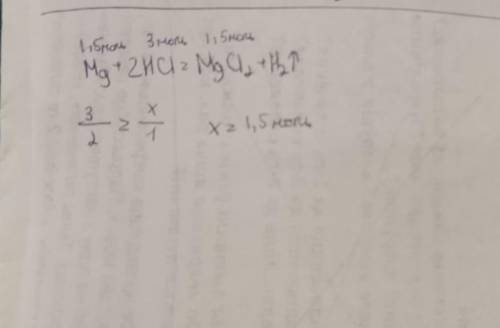 1,5моль 3моль 1,5моль
Mg + 2HCl = MgCl₂ + H₂↑
3/2 = x/1 x = 1,5моль